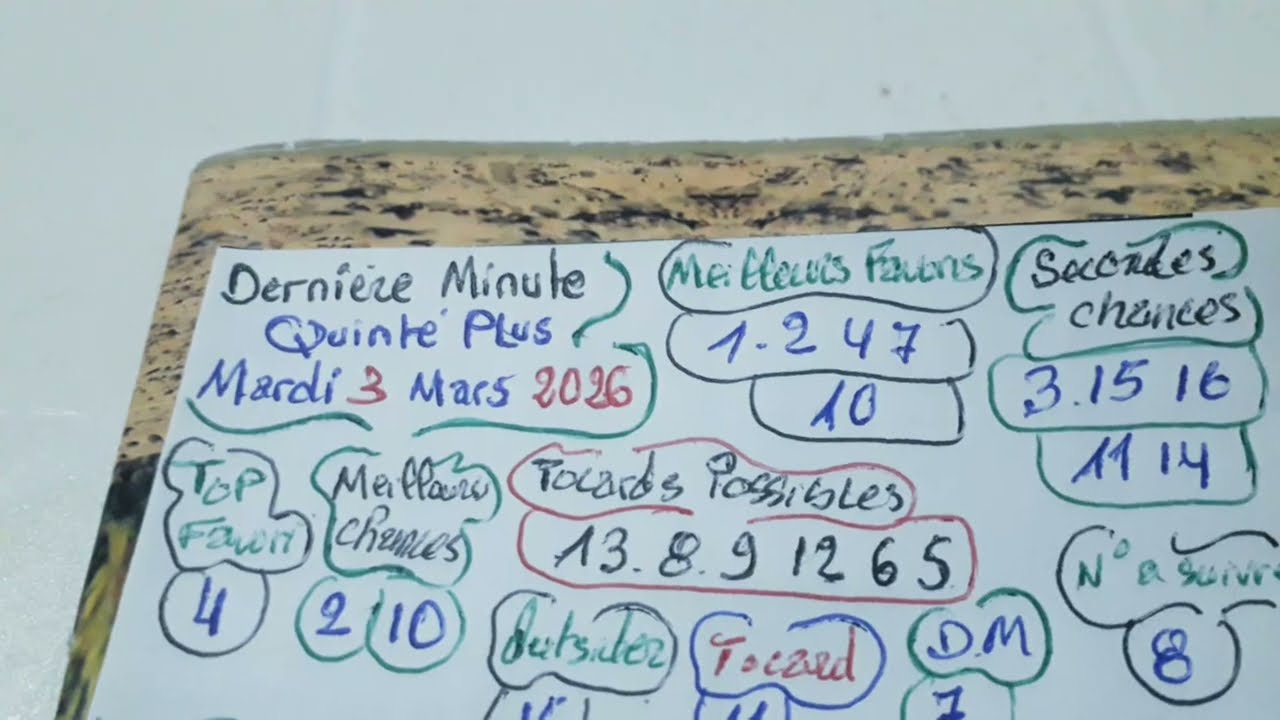 Dernière Minute
Quinté Plus
Mardi 3 Mars 2026
Meilleurs Favoris
1.2 4 7
10
Secondes
chances
3.15 16
11 14
Top
Favori
4
Meilleurs
chances
2 10
Tocards Possibles
13.8.9 12 6 5
Outsider
Tocard
11
D.M
7
N° a suivre
8